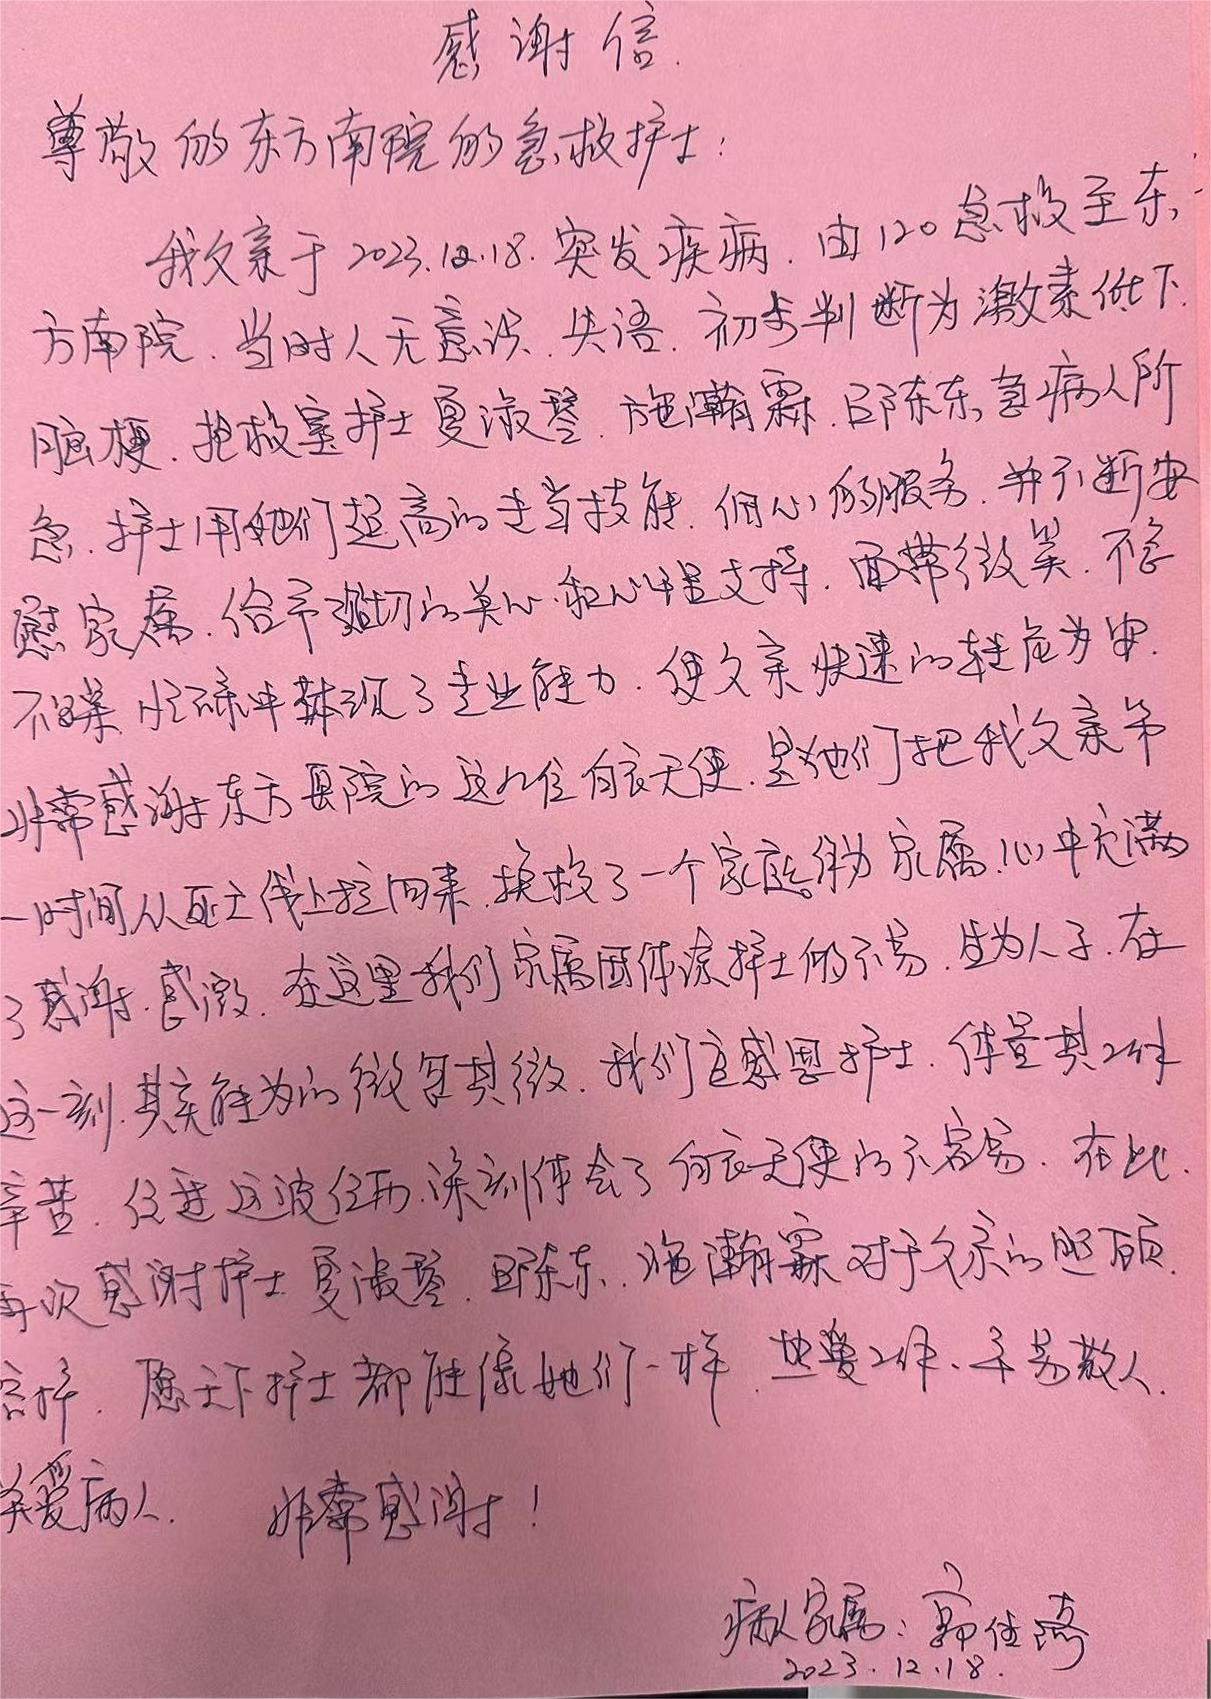 感谢信
尊敬的东方南院的急救护士:
我父亲于2023.12.18.突发疾病.由120急救至东
方南院.当时人无意识.失语.初步判断为激素低下.
脑梗.抢救室护士夏淑琴.施瀚霖.邱东东.急病人所
急.护士用她们超高的专业技能.细心的服务.并不断安
慰家属.给予殷切的关心和心理支持.面带微笑.不急
不躁.忙碌中体现了专业能力.使父亲快速的转危为安.
非常感谢东方医院的这几位白衣天使.是她们把我父亲第
一时间从死亡线上拉回来.挽救了一个家庭.作为家属.心中充满
了感谢.感激.在这里我们家属团体谅护士的不易.生为人子.在
这一刻.其实能为的微乎其微.我们应感恩护士.体量其工作
辛苦.经过这波经历.深刻体会了白衣天使的不容易.在此.
再次感谢护士夏淑琴.邱东东.施瀚霖对于父亲的照顾.
愿天下护士都能像她们一样.热爱工作、
关爱病人. 非常感谢!
病人家属:
2023.12.18.